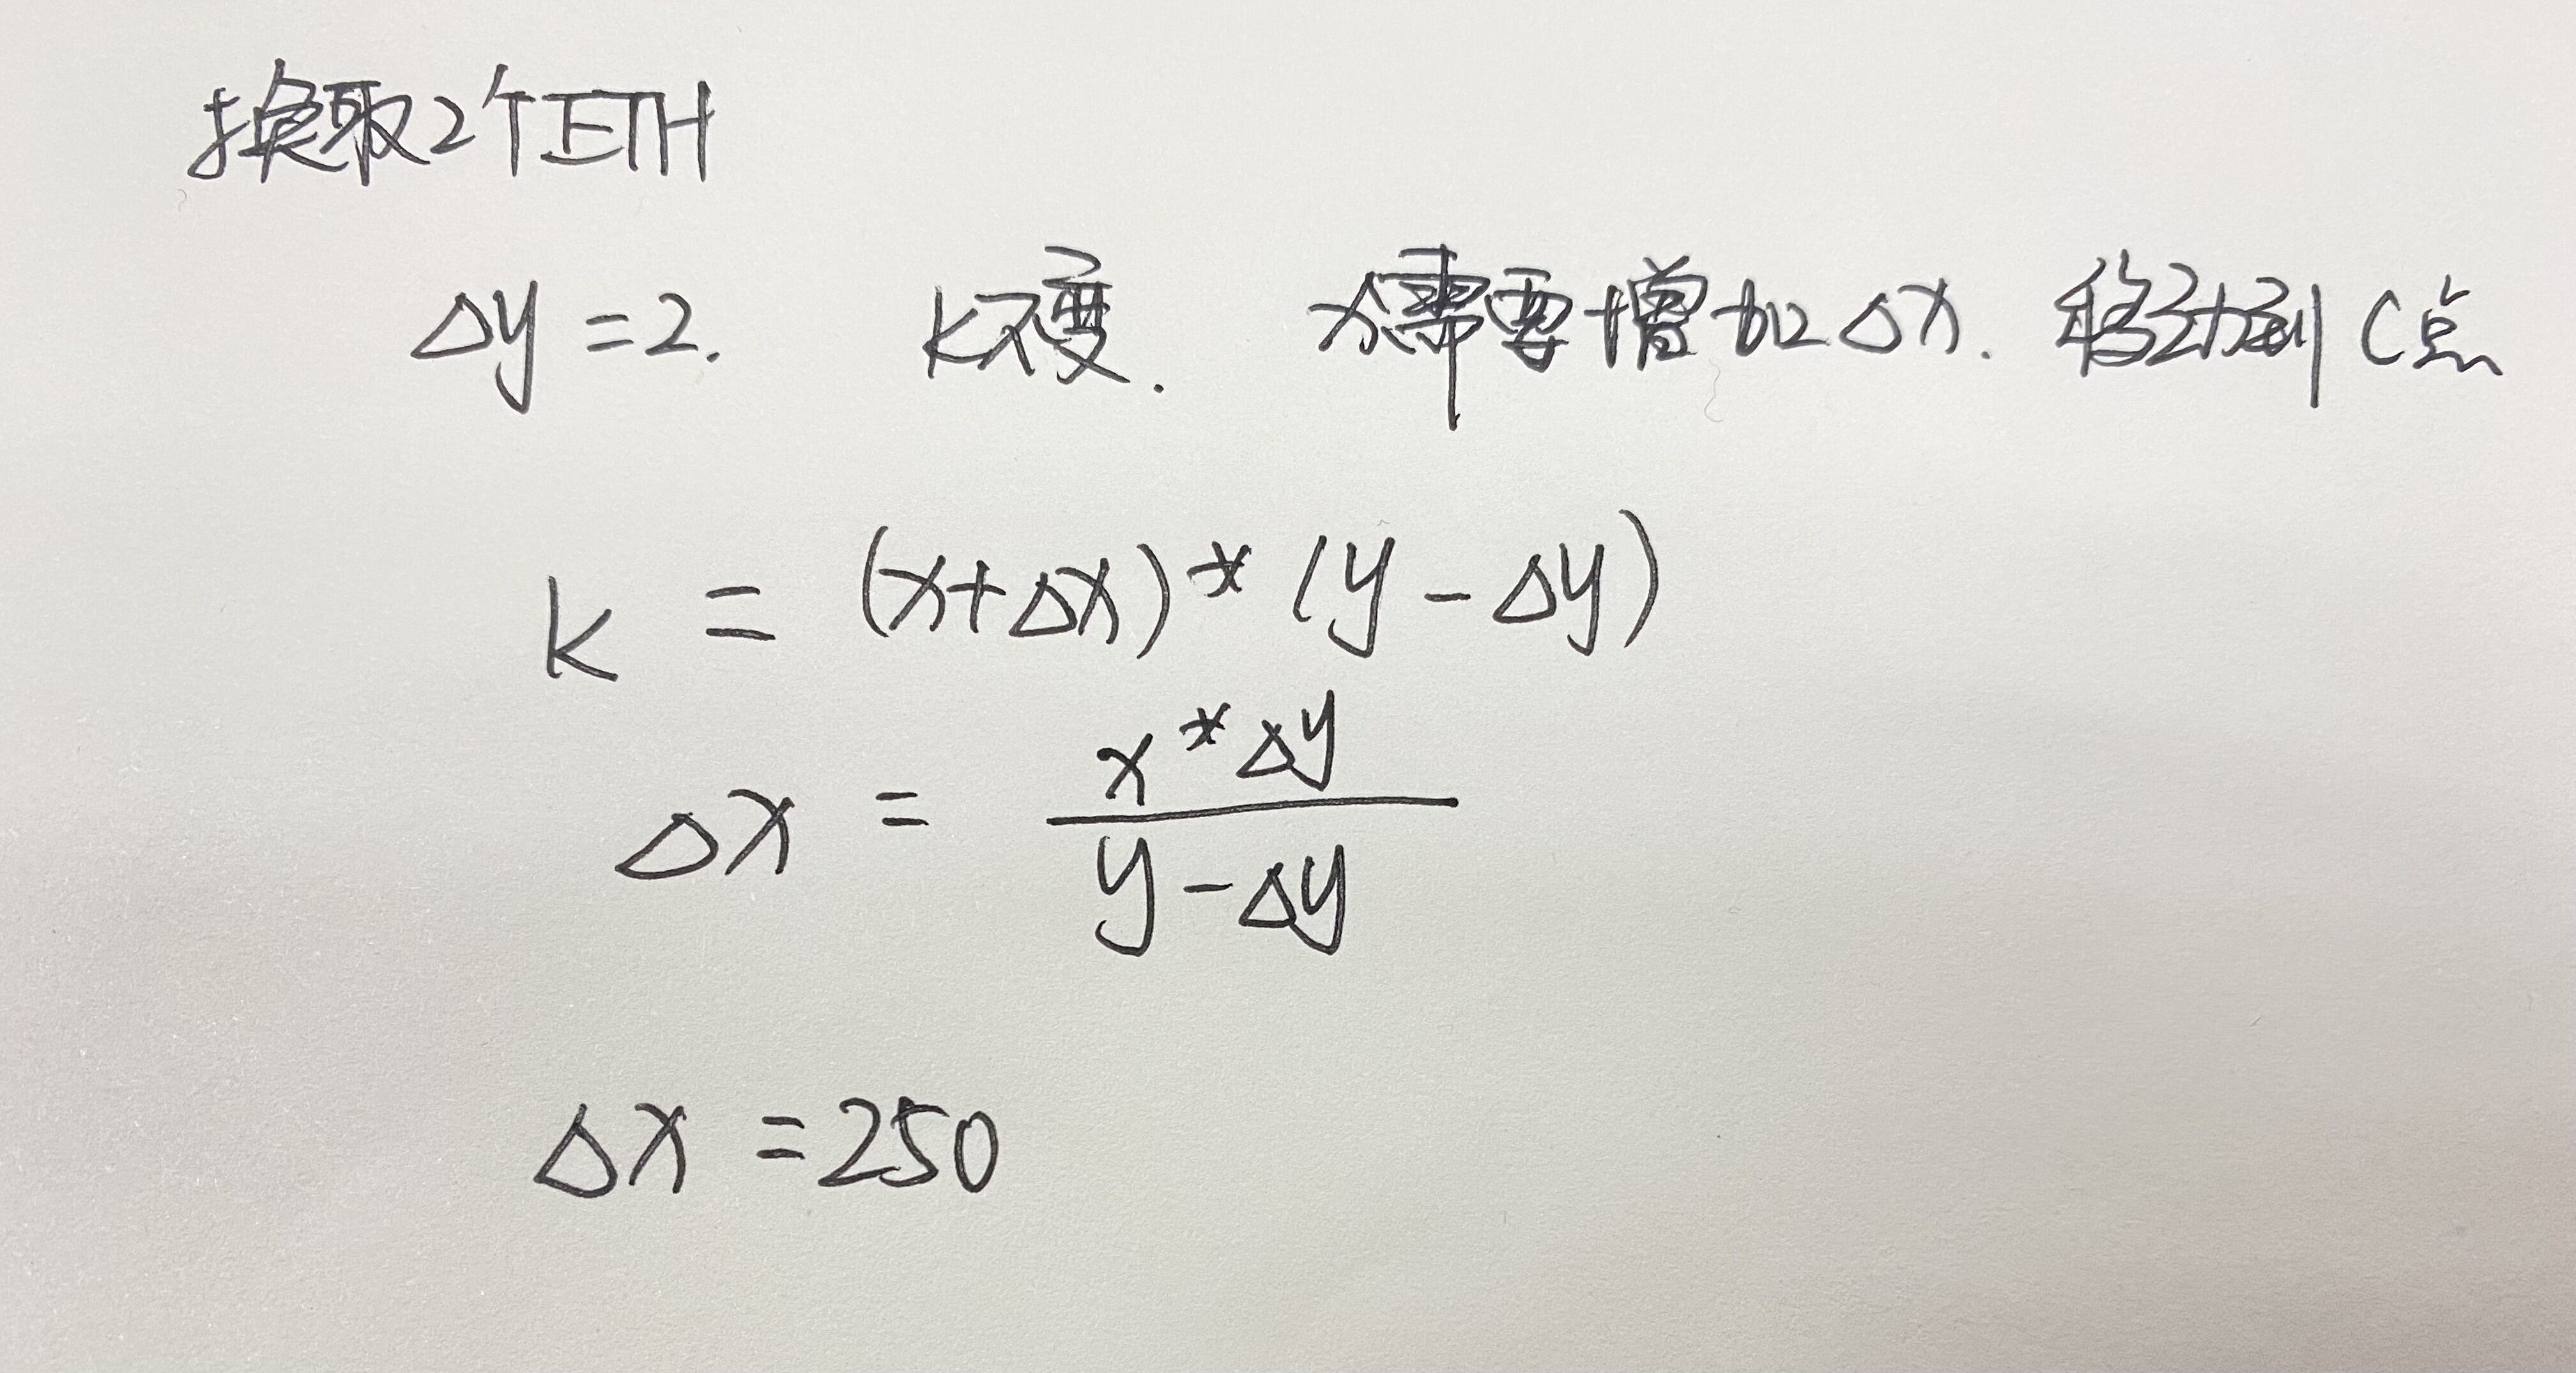 换取2个ETH
Δy=2. K不变. x需要增加Δx. 移动到C点
K = (x+Δx)*(y-Δy)
Δx = x*Δy
y-Δy
Δx=250